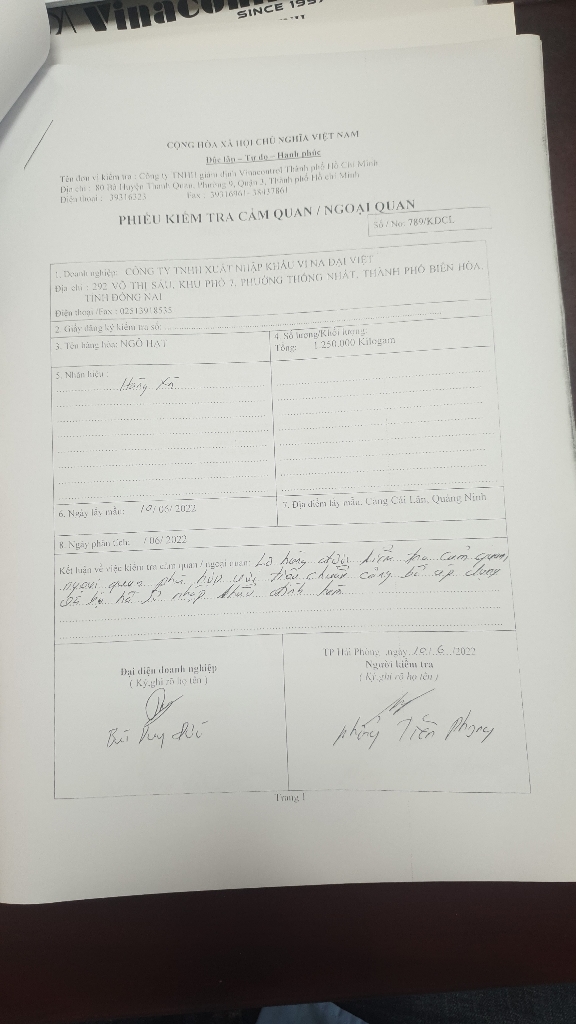 Vinacom
SINCE 1957
CỘNG HÒA XÃ HỘI CHỦ NGHĨA VIỆT NAM
Độc lập – Tự do – Hạnh phúc
Tên đơn vị kiểm tra : Công ty TNHH giám định Vinacontrol Thành phố Hồ Chí Minh
Địa chỉ : 80 Bà Huyện Thanh Quan, Phường 9, Quận 3, Thành phố Hồ chí Minh
Điện thoại : 39316323 Fax : 39316961- 38437861
PHIẾU KIỂM TRA CẢM QUAN / NGOẠI QUAN
Số / No: 789/KDCL
1. Doanh nghiệp: CÔNG TY TNHH XUẤT NHẬP KHẨU VI NA ĐẠI VIỆT
Địa chỉ : 292 VÕ THỊ SÁU, KHU PHỐ 7, PHƯỜNG THỐNG NHẤT, THÀNH PHỐ BIÊN HÒA,
TỈNH ĐỒNG NAI
Điện thoại /Fax : 02513918535
2. Giấy đăng ký kiểm tra số:
3. Tên hàng hóa: NGÔ HẠT
4. Số lượng/Khối lượng:
Tổng: 1.250.000 Kilogam
5. Nhãn hiệu :
Hàng Xá
6. Ngày lấy mẫu: 10/06/2022
7. Địa điểm lấy mẫu: Cảng Cái Lân, Quảng Ninh
8. Ngày phân tích: /06/2022
Kết luận về việc kiểm tra cảm quan / ngoại quan: Lô hàng được kiểm tra cảm quan,
ngoại quan phù hợp với tiêu chuẩn công bố áp dụng
hồ sơ nhập khẩu đính kèm
TP Hải Phòng, ngày 10/6/2022
Đại diện doanh nghiệp
( Ký,ghi rõ họ tên )
Người kiểm tra
( Ký,ghi rõ họ tên )
Bùi Duy
Phùng Tiến Phong
Trang 1